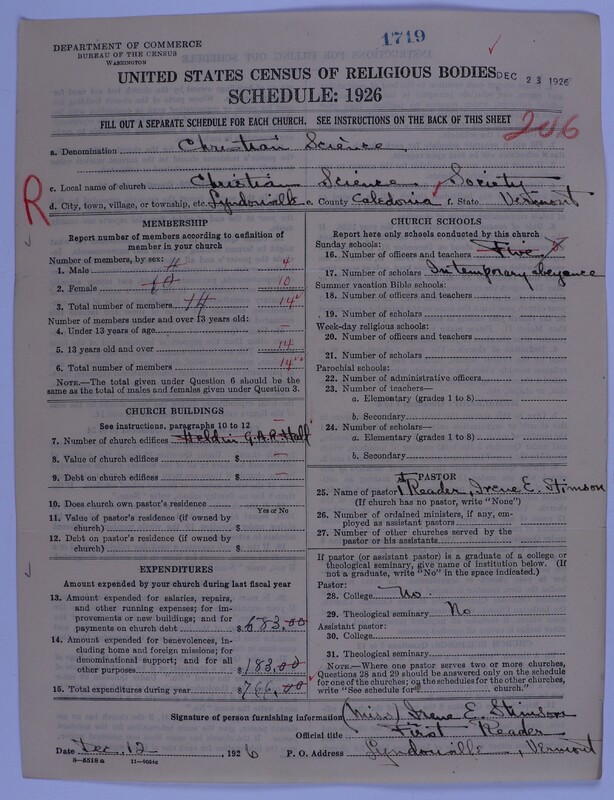 1719
DEPARTMENT OF COMMERCE
BUREAU OF THE CENSUS
WASHINGTON
UNITED STATES CENSUS OF RELIGIOUS BODIES
DEC 23 1926
SCHEDULE: 1926
FILL OUT A SEPARATE SCHEDULE FOR EACH CHURCH. SEE INSTRUCTIONS ON THE BACK OF THIS SHEET
206
a. Denomination Christian Science
R
c. Local name of church Christian Science Society
d. City, town, village, or township, etc. Lyndonville e. County Caledonia f. State Vermont
MEMBERSHIP
Report number of members according to definition of
member in your church
Number of members, by sex:
1. Male 4 4
2. Female 10 10
3. Total number of members 14 14
Number of members under and over 13 years old:
4. Under 13 years of age –
5. 13 years old and over 14
6. Total number of members 14
NOTE.—The total given under Question 6 should be
same as the total of males and females given under Question 3.
CHURCH BUILDINGS
See instructions, paragraphs 10 to 12
7. Number of church edifices Held in G.A.R. Hall –
8. Value of church edifices $ –
9. Debt on church edifices $ –
10. Does church own pastor's residence
Yes or No
11. Value of pastor's residence (if owned by
church) $
12. Debt on pastor's residence (if owned by
church) $
EXPENDITURES
Amount expended by your church during last fiscal year
13. Amount expended for salaries, repairs,
and other running expenses; for im-
provements or new buildings; and for
payments on church debt $583.00
14. Amount expended for benevolences, in-
cluding home and foreign missions; for
denominational support; and for all
other purposes $183.00
15. Total expenditures during year $766.00
CHURCH SCHOOLS
Report here only schools conducted by this church
Sunday schools:
16. Number of officers and teachers Five 5
17. Number of scholars In temporary abeyance
Summer vacation Bible schools:
18. Number of officers and teachers
19. Number of scholars
Week-day religious schools:
20. Number of officers and teachers
21. Number of scholars
Parochial schools:
22. Number of administrative officers
23. Number of teachers—
a. Elementary (grades 1 to 8)
b. Secondary
24. Number of scholars—
a. Elementary (grades 1 to 8)
b. Secondary
PASTOR
25. Name of pastor 1st Reader, Irene E. Stimson
(If church has no pastor, write "None")
26. Number of ordained ministers, if any, em-
ployed as assistant pastors
27. Number of other churches served by the
pastor or his assistants
If pastor (or assistant pastor) is a graduate of a college or
theological seminary, give name of institution below. (If
not a graduate, write "No" in the space indicated.)
Pastor:
28. College No.
29. Theological seminary No
Assistant pastor:
30. College
31. Theological seminary
NOTE.—Where one pastor serves two or more churches,
Questions 28 and 29 should be answered only on the schedule
for one of the churches; on the schedules for the other churches,
write "See schedule for church."
Signature of person furnishing information (Miss) Irene E. Stimson
Official title First Reader
Date Dec. 12, 1926 P. O. Address Lyndonville, Vermont
8—5518 a 11—9034c